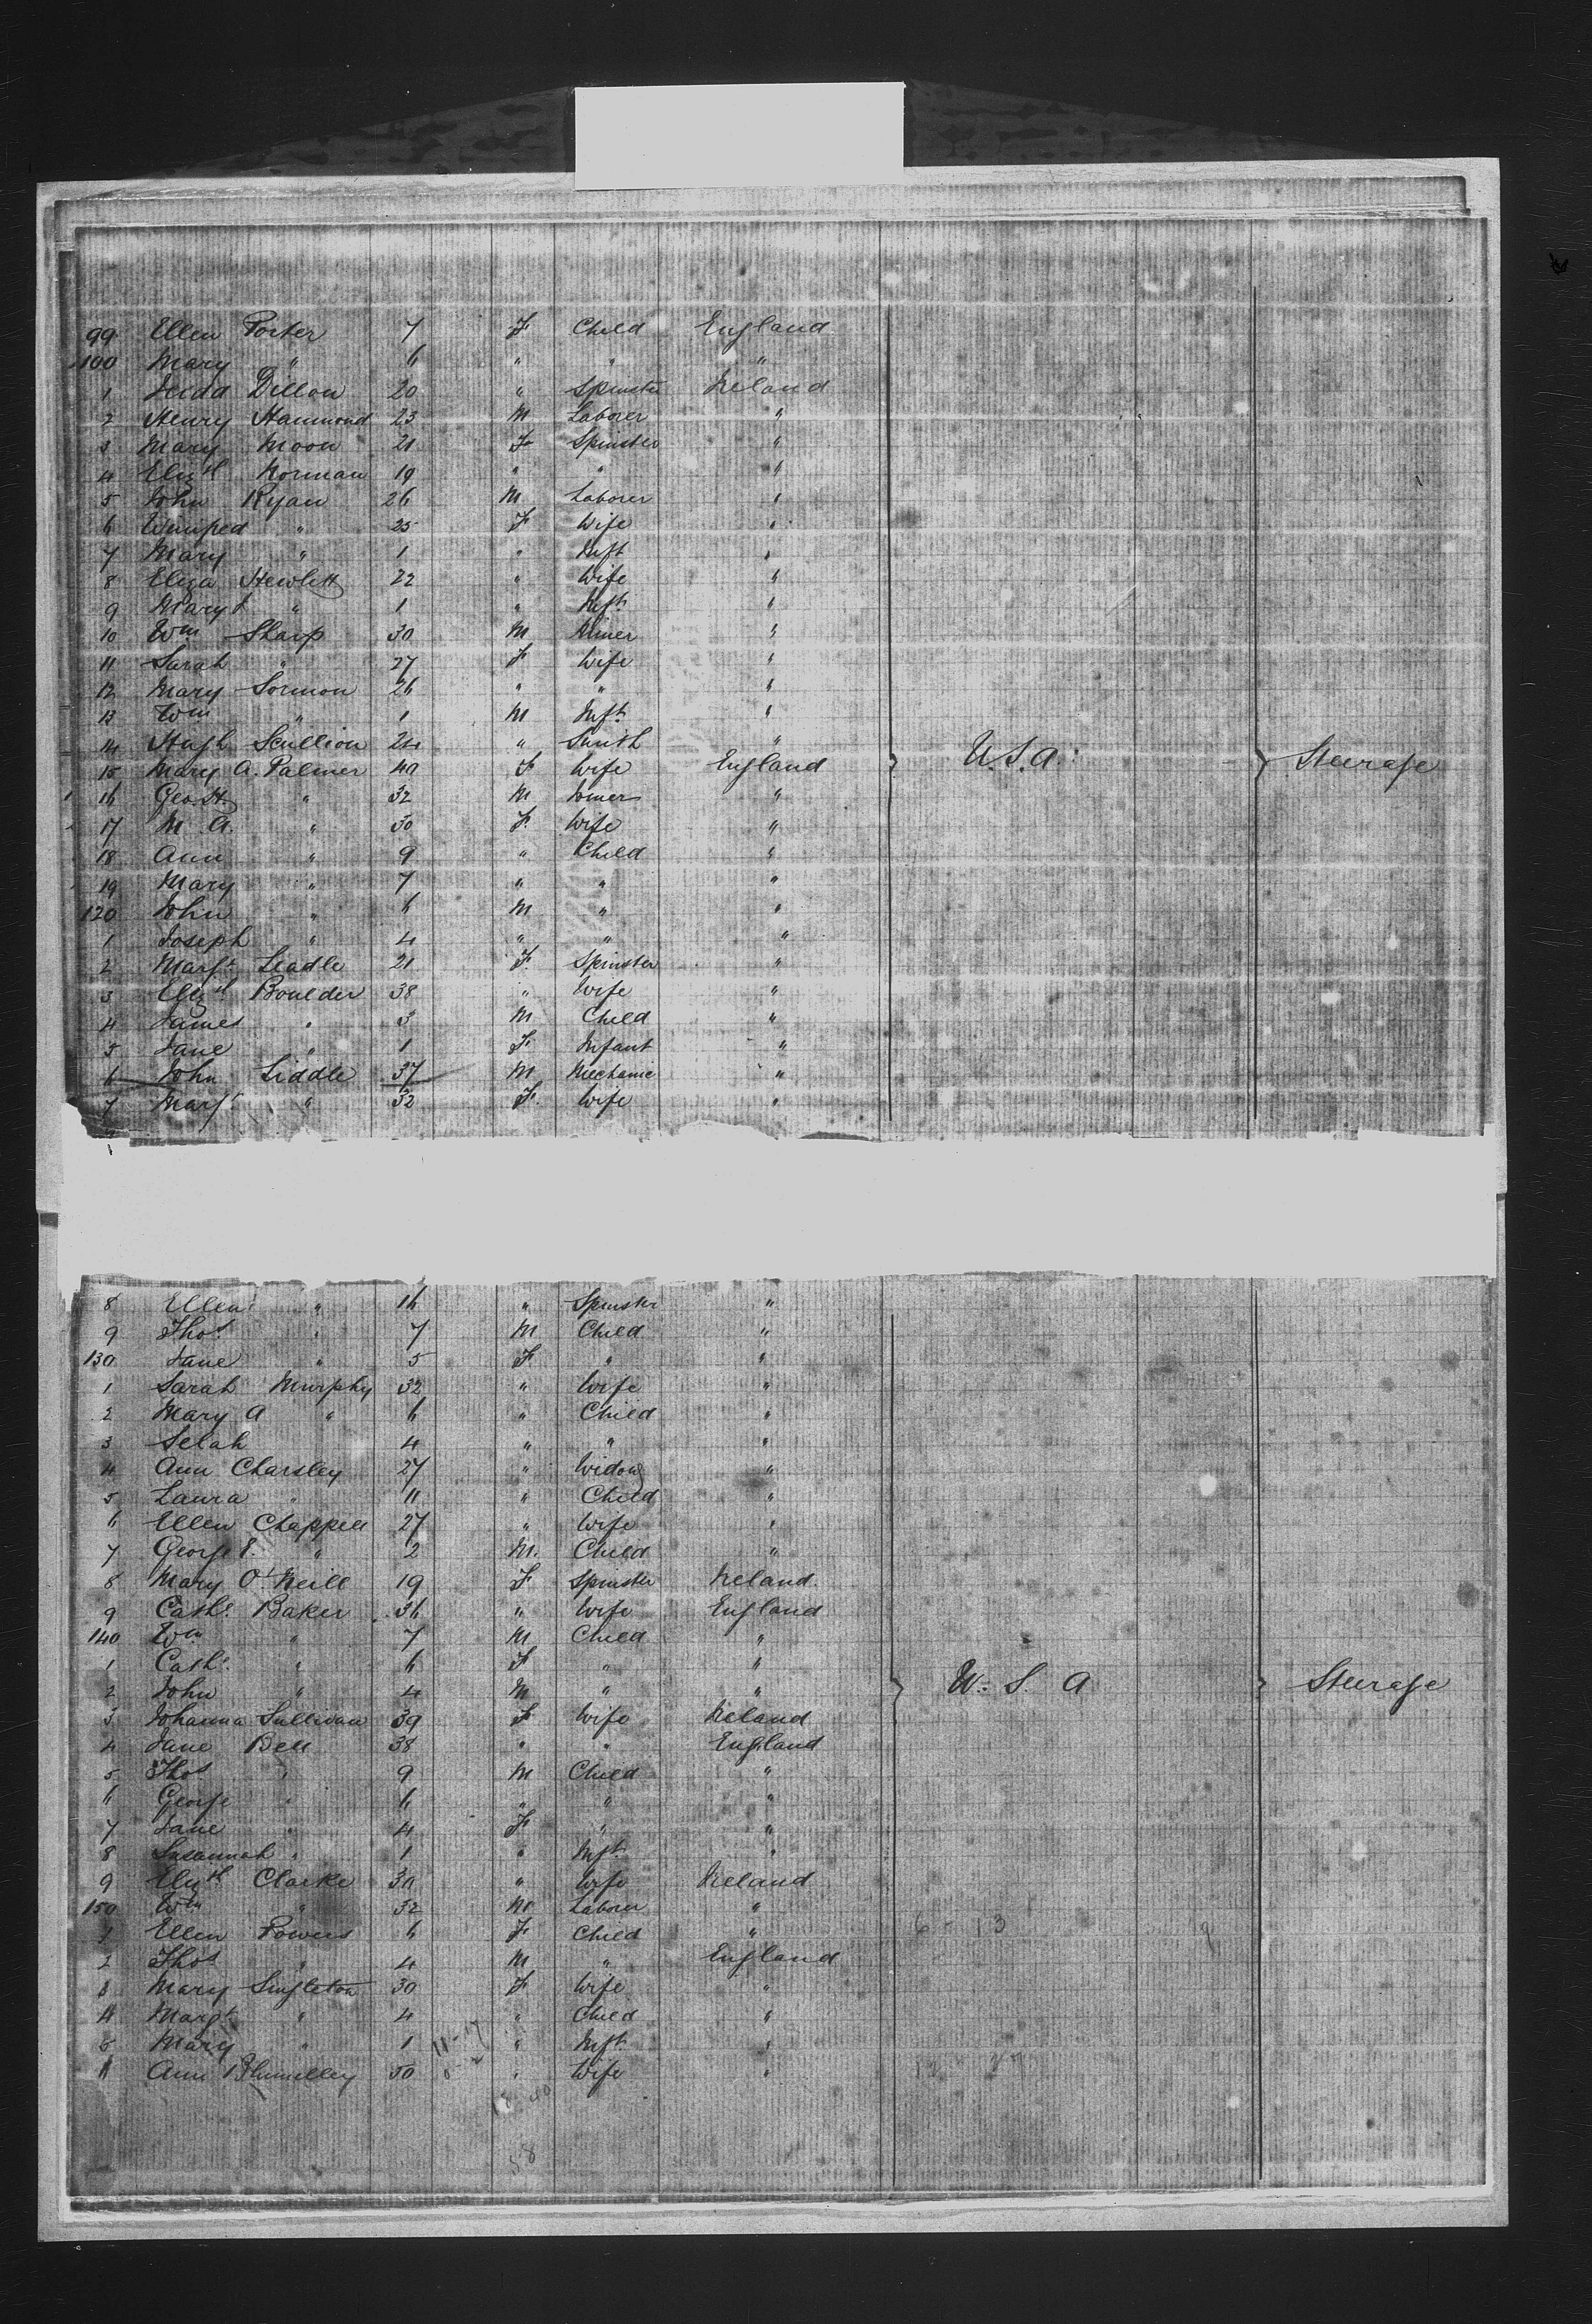 99 Ellen Porter 7 F Child England
100 Mary " 6 " " "
1 Dillon 20 " Spinster Ireland
2 Henry Hammond 23 M Laborer "
3 Mary Moon 21 F Spinster "
4 Elizth Norman 19 " " "
5 John Ryan 26 M Laborer "
6 Winifred " 25 F Wife "
7 Mary " 1 " Inft "
8 Eliza Hewlett 22 " Wife "
9 Mary " 1 " Inft "
10 Wm Sharp 30 M Miner "
11 Sarah " 27 F Wife "
12 Mary 26 " " "
13 Wm " 1 M Inft "
14 Hugh Scullion 24 " Smith "
15 Mary A. Palmer 40 F Wife England } U.S.A. } Steerage
16 Geo. H. " 32 M "
17 M A. " 30 F Wife "
18 Ann " 9 " Child "
19 Mary " 7 " " "
120 John " 6 M " "
1 Joseph " 4 " " "
2 Margt Leadle 21 F. Spinster "
3 Elizth Boulder 38 " Wife "
4 James " 3 M Child "
5 Jane " 1 F Infant "
6 John Liddle 37 M Mechanic "
7 Margt " 32 F. Wife "
8 Ellen " 16 " Spinster "
9 Thos " 7 M Child "
130 Jane " 5 F " "
1 Sarah Murphy 32 " Wife "
2 Mary A " 6 " Child "
3 Selah 4 " " "
4 Ann Charsley 27 " Widow "
5 Laura " 11 " Child "
6 Ellen Chappell 27 " Wife "
7 George " 2 M. Child "
8 Mary O'Neill 19 F Spinster Ireland
9 Cathe Baker 36 " Wife England
140 Wm " 7 M Child "
1 Cathe " 6 F " "
2 John " 4 M " " } U. S. A } Steerage
3 Johanna Sullivan 39 F Wife Ireland
4 Jane Bell 38 " " England
5 Thos " 9 M Child "
6 George " 6 " " "
7 Jane " 4 F " "
8 Susannah " 1 " Inft "
9 Elizth Clarke 30 " Wife Ireland
150 Wm " 32 M Laborer "
1 Ellen Powers 6 F Child "
2 Thos " 4 M " England
3 Mary Singleton 30 F Wife "
4 Margt " 4 " Child "
5 Mary " 1 " Inft "
6 Ann 50 " Wife "